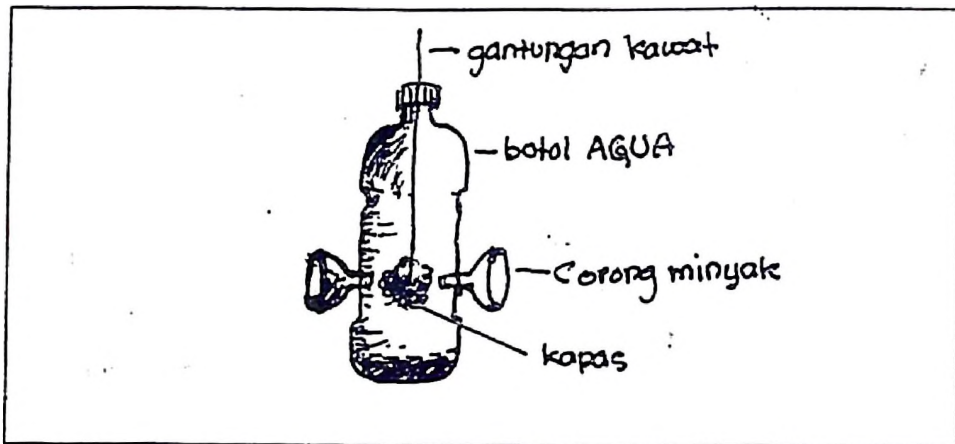 gantungan kawat
botol AGUA
Corong minyak
kapas